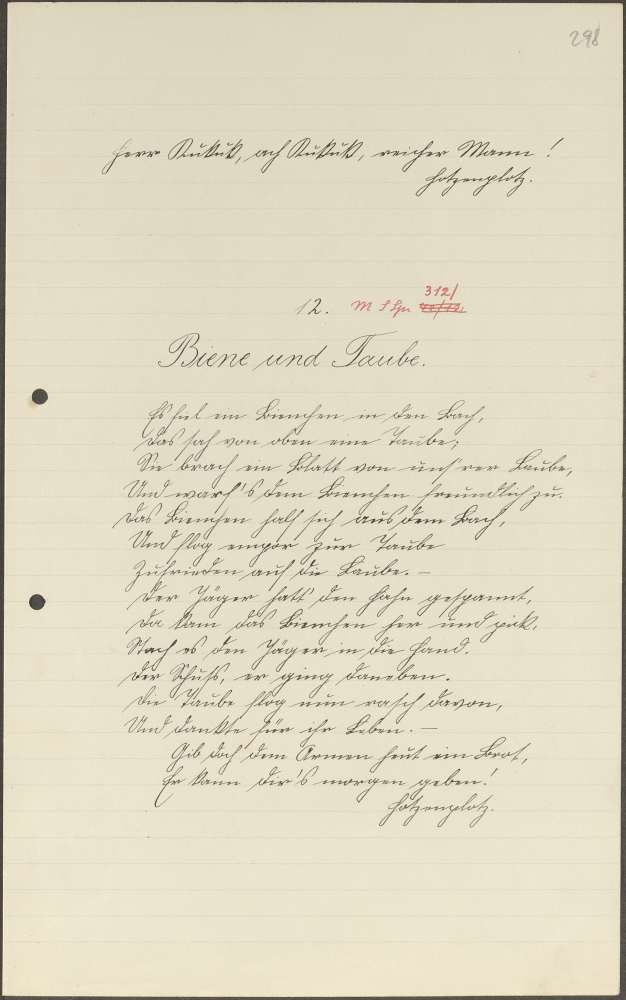 298
Herr Kukuk, ach Kukuk, reicher Mann!
Hotzenplotz.
12. M S Spr 312/
Biene und Taube.
Es fiel ein Bienchen in den Bach,
Das sah von oben eine Taube;
Sie brach ein Blatt von uns'rer Laube,
Und warf's dem Bienchen freundlich zu.
Das Bienchen half sich aus dem Bach,
Und flog empor zur Taube
Zufrieden auf die Laube. —
Der Jäger hatt' den Hahn gespannt,
Da kam das Bienchen her und pick.
Stach es den Jäger in die Hand.
Der Schuß, er ging daneben.
Die Taube flog nun rasch davon,
Und dankte für ihr Leben. —
Gib doch dem Armen heut ein Brot,
Er kann dir's morgen geben!
Hotzenplotz.